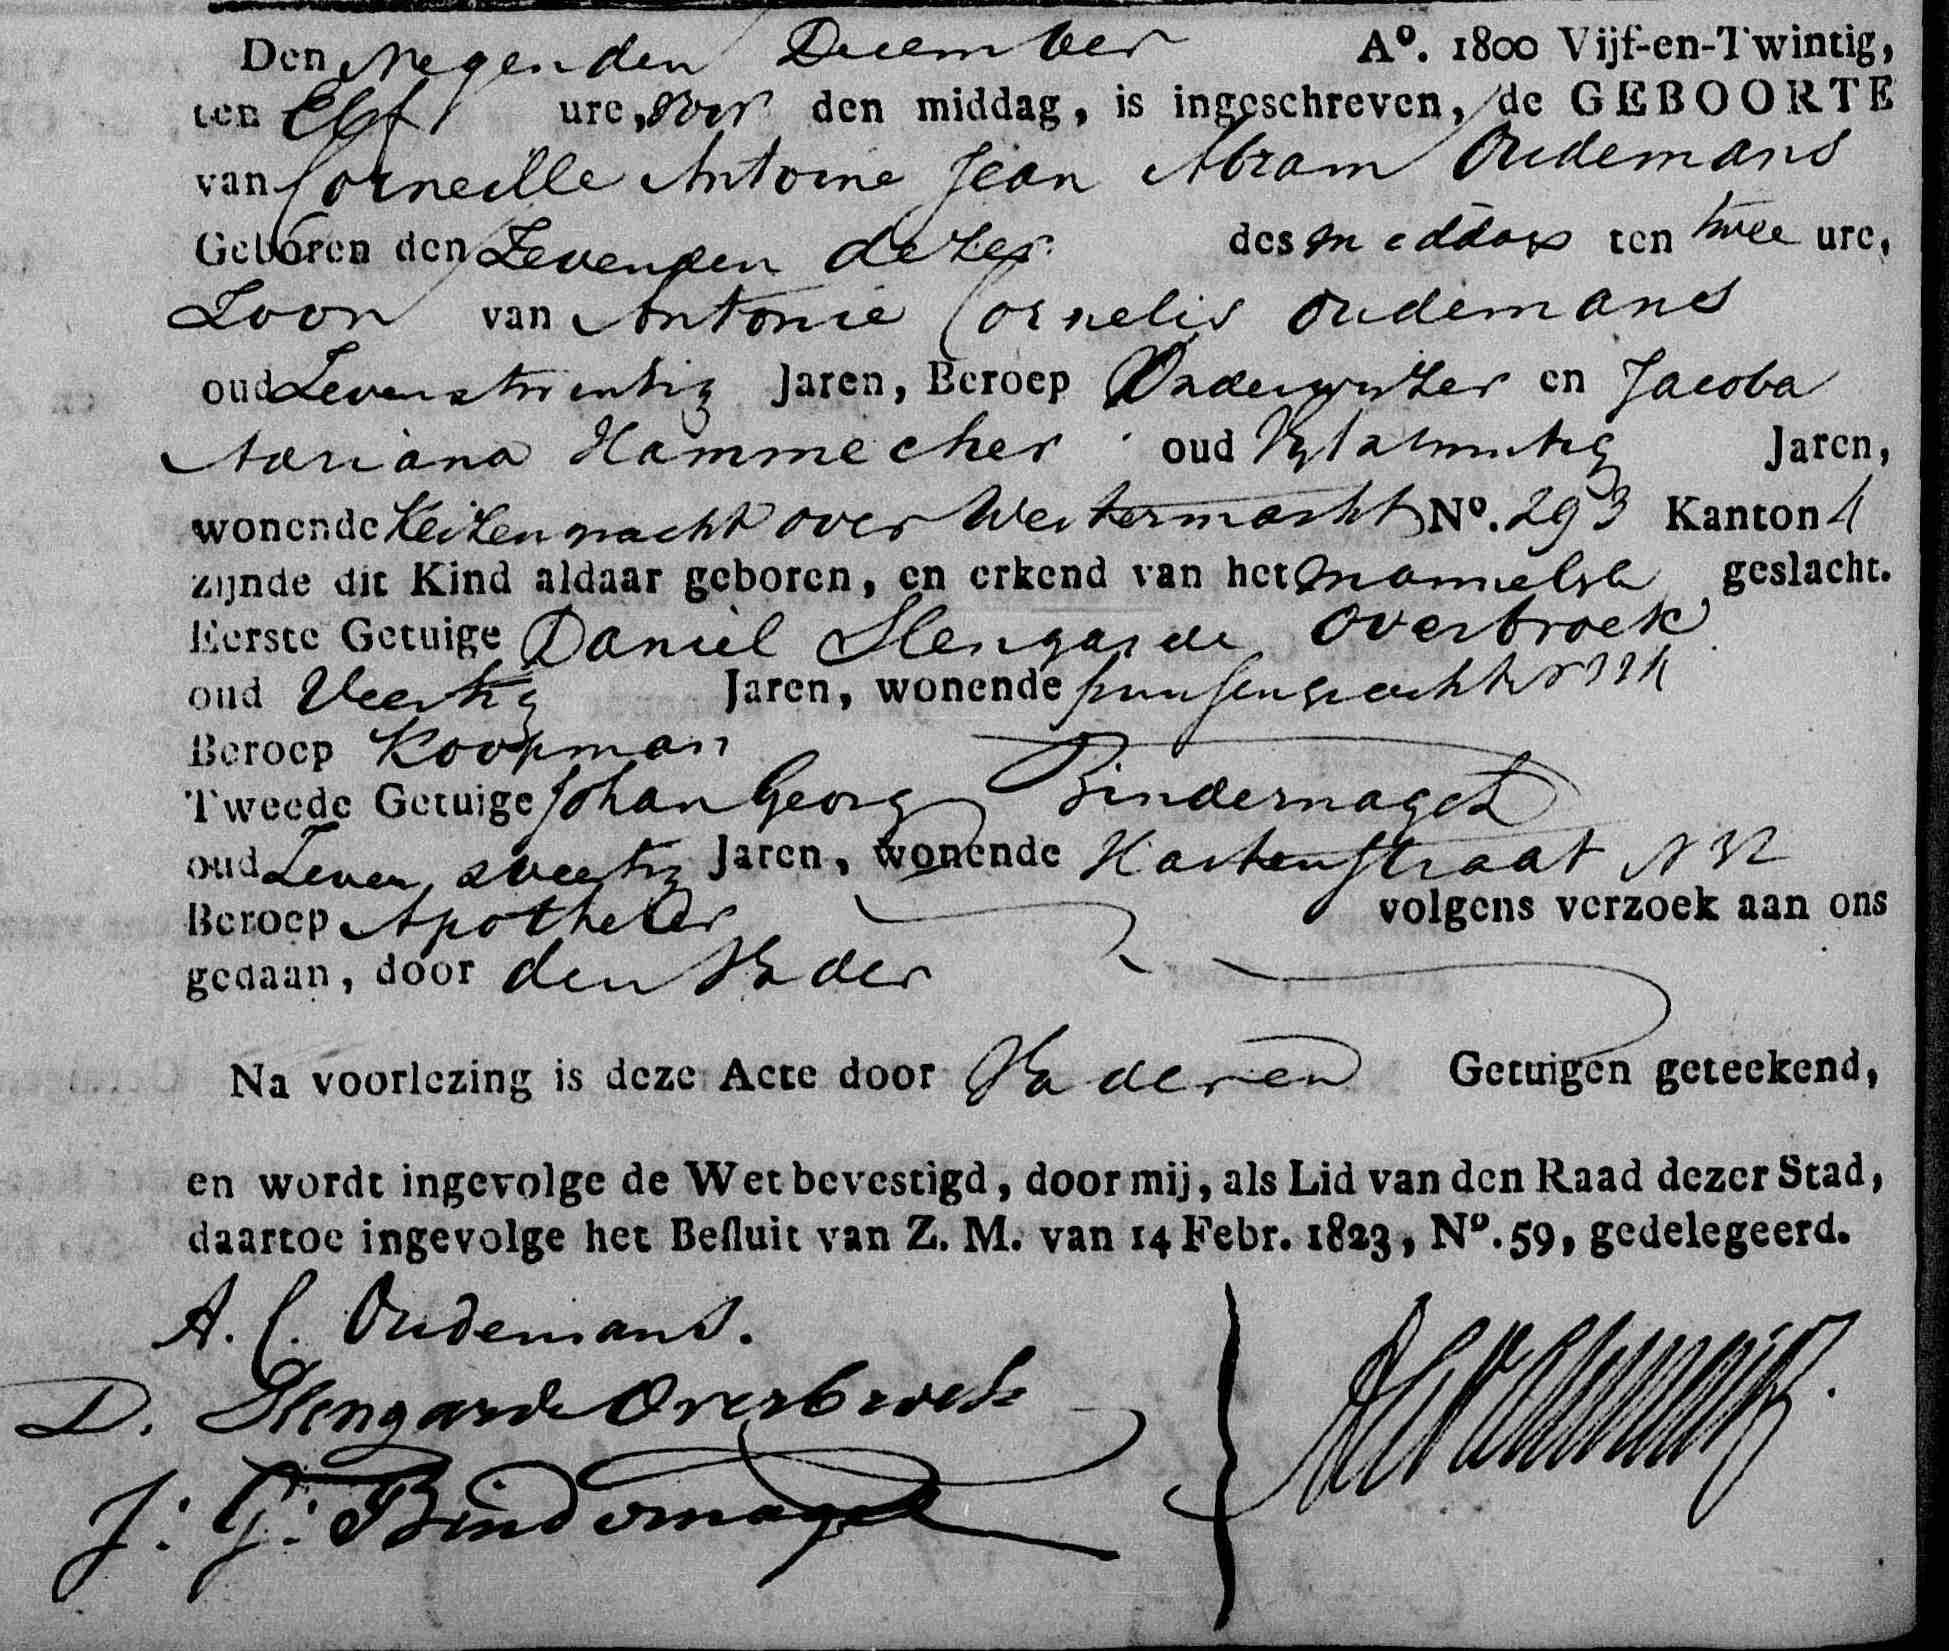 Den Negenden December Aº. 1800 Vijf-en-Twintig,
ten Elf ure, voor den middag, is ingeschreven, de GEBOORTE
van Corneille Antoine Jean Abram Oudemans
Geboren den Zevenden dezer des middags ten twee ure,
Zoon van Antonie Cornelis Oudemans
oud Zevenstwintig Jaren, Beroep Onderwyzer en Jacoba
Adriana Hammecher oud Vyfatwintig Jaren,
wonende Keizengracht over Westermarkt Nº. 293 Kanton 4
zijnde dit Kind aldaar geboren, en erkend van het mannelyk geslacht.
Eerste Getuige Daniel Slengarde Overbroek
oud Veertig Jaren, wonende prinsengracht
Beroep Koopman
Tweede Getuige Johan Georg Bindernagel
oud Zeven aveertig Jaren, wonende Hartenstraat N 32
Beroep Apotheker volgens verzoek aan ons
gedaan, door den Vader
Na voorlezing is deze Acte door Vader en Getuigen geteekend,
en wordt ingevolge de Wet bevestigd, door mij, als Lid van den Raad dezer Stad,
daartoe ingevolge het Besluit van Z. M. van 14 Febr. 1823, Nº. 59, gedelegeerd.
A. C. Oudemans.
D. Slengarde Overbroek
J: G: Bindernagel